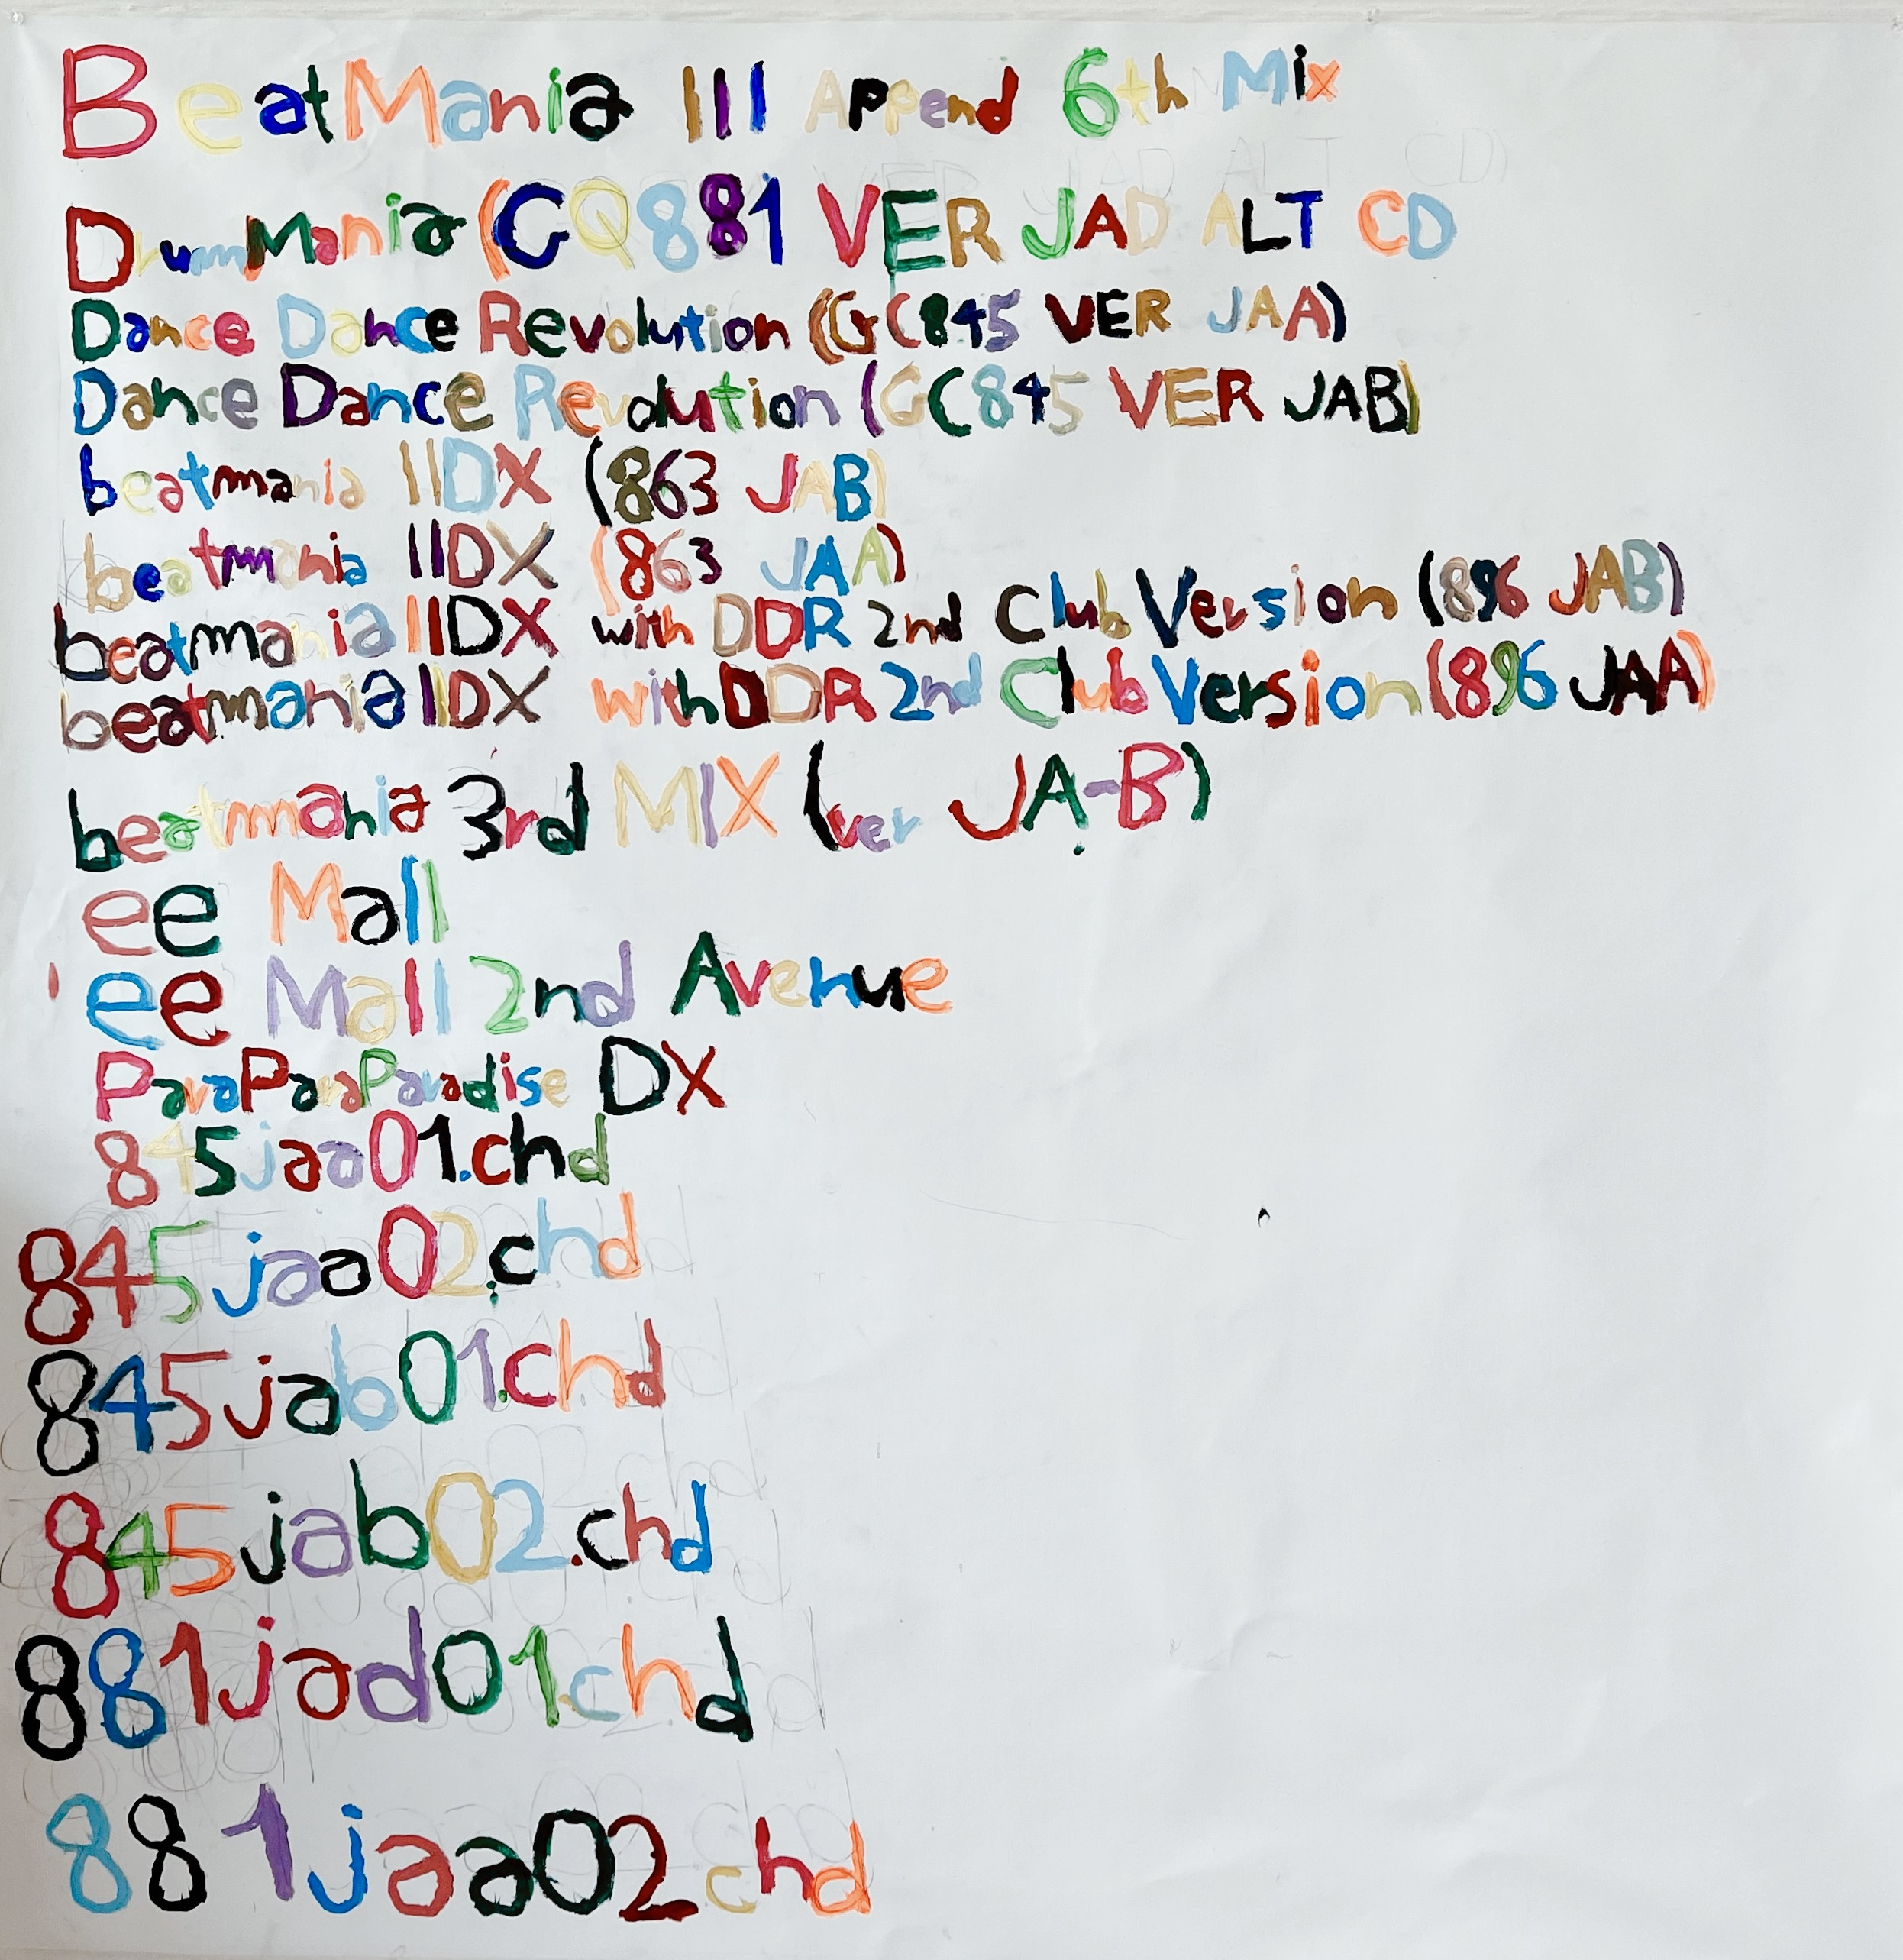 BeatMania III Append 6th Mix
DrumMania (GQ881 VER JAD ALT CD
Dance Dance Revolution (GC845 VER JAA)
Dance Dance Revolution (GC845 VER JAB)
beatmania IIDX (863 JAB)
beatmania IIDX (863 JAA)
beatmania IIDX with DDR 2nd Club Version (896 JAB)
beatmania IIDX with DDR 2nd Club Version (896 JAA)
beatmania 3rd MIX (ver JA-B)
ee Mall
ee Mall 2nd Avenue
ParaParaParadise DX
845jaa01.chd
845jaa02.chd
845jab01.chd
845jab02.chd
881jad01.chd
881jaa02 chd